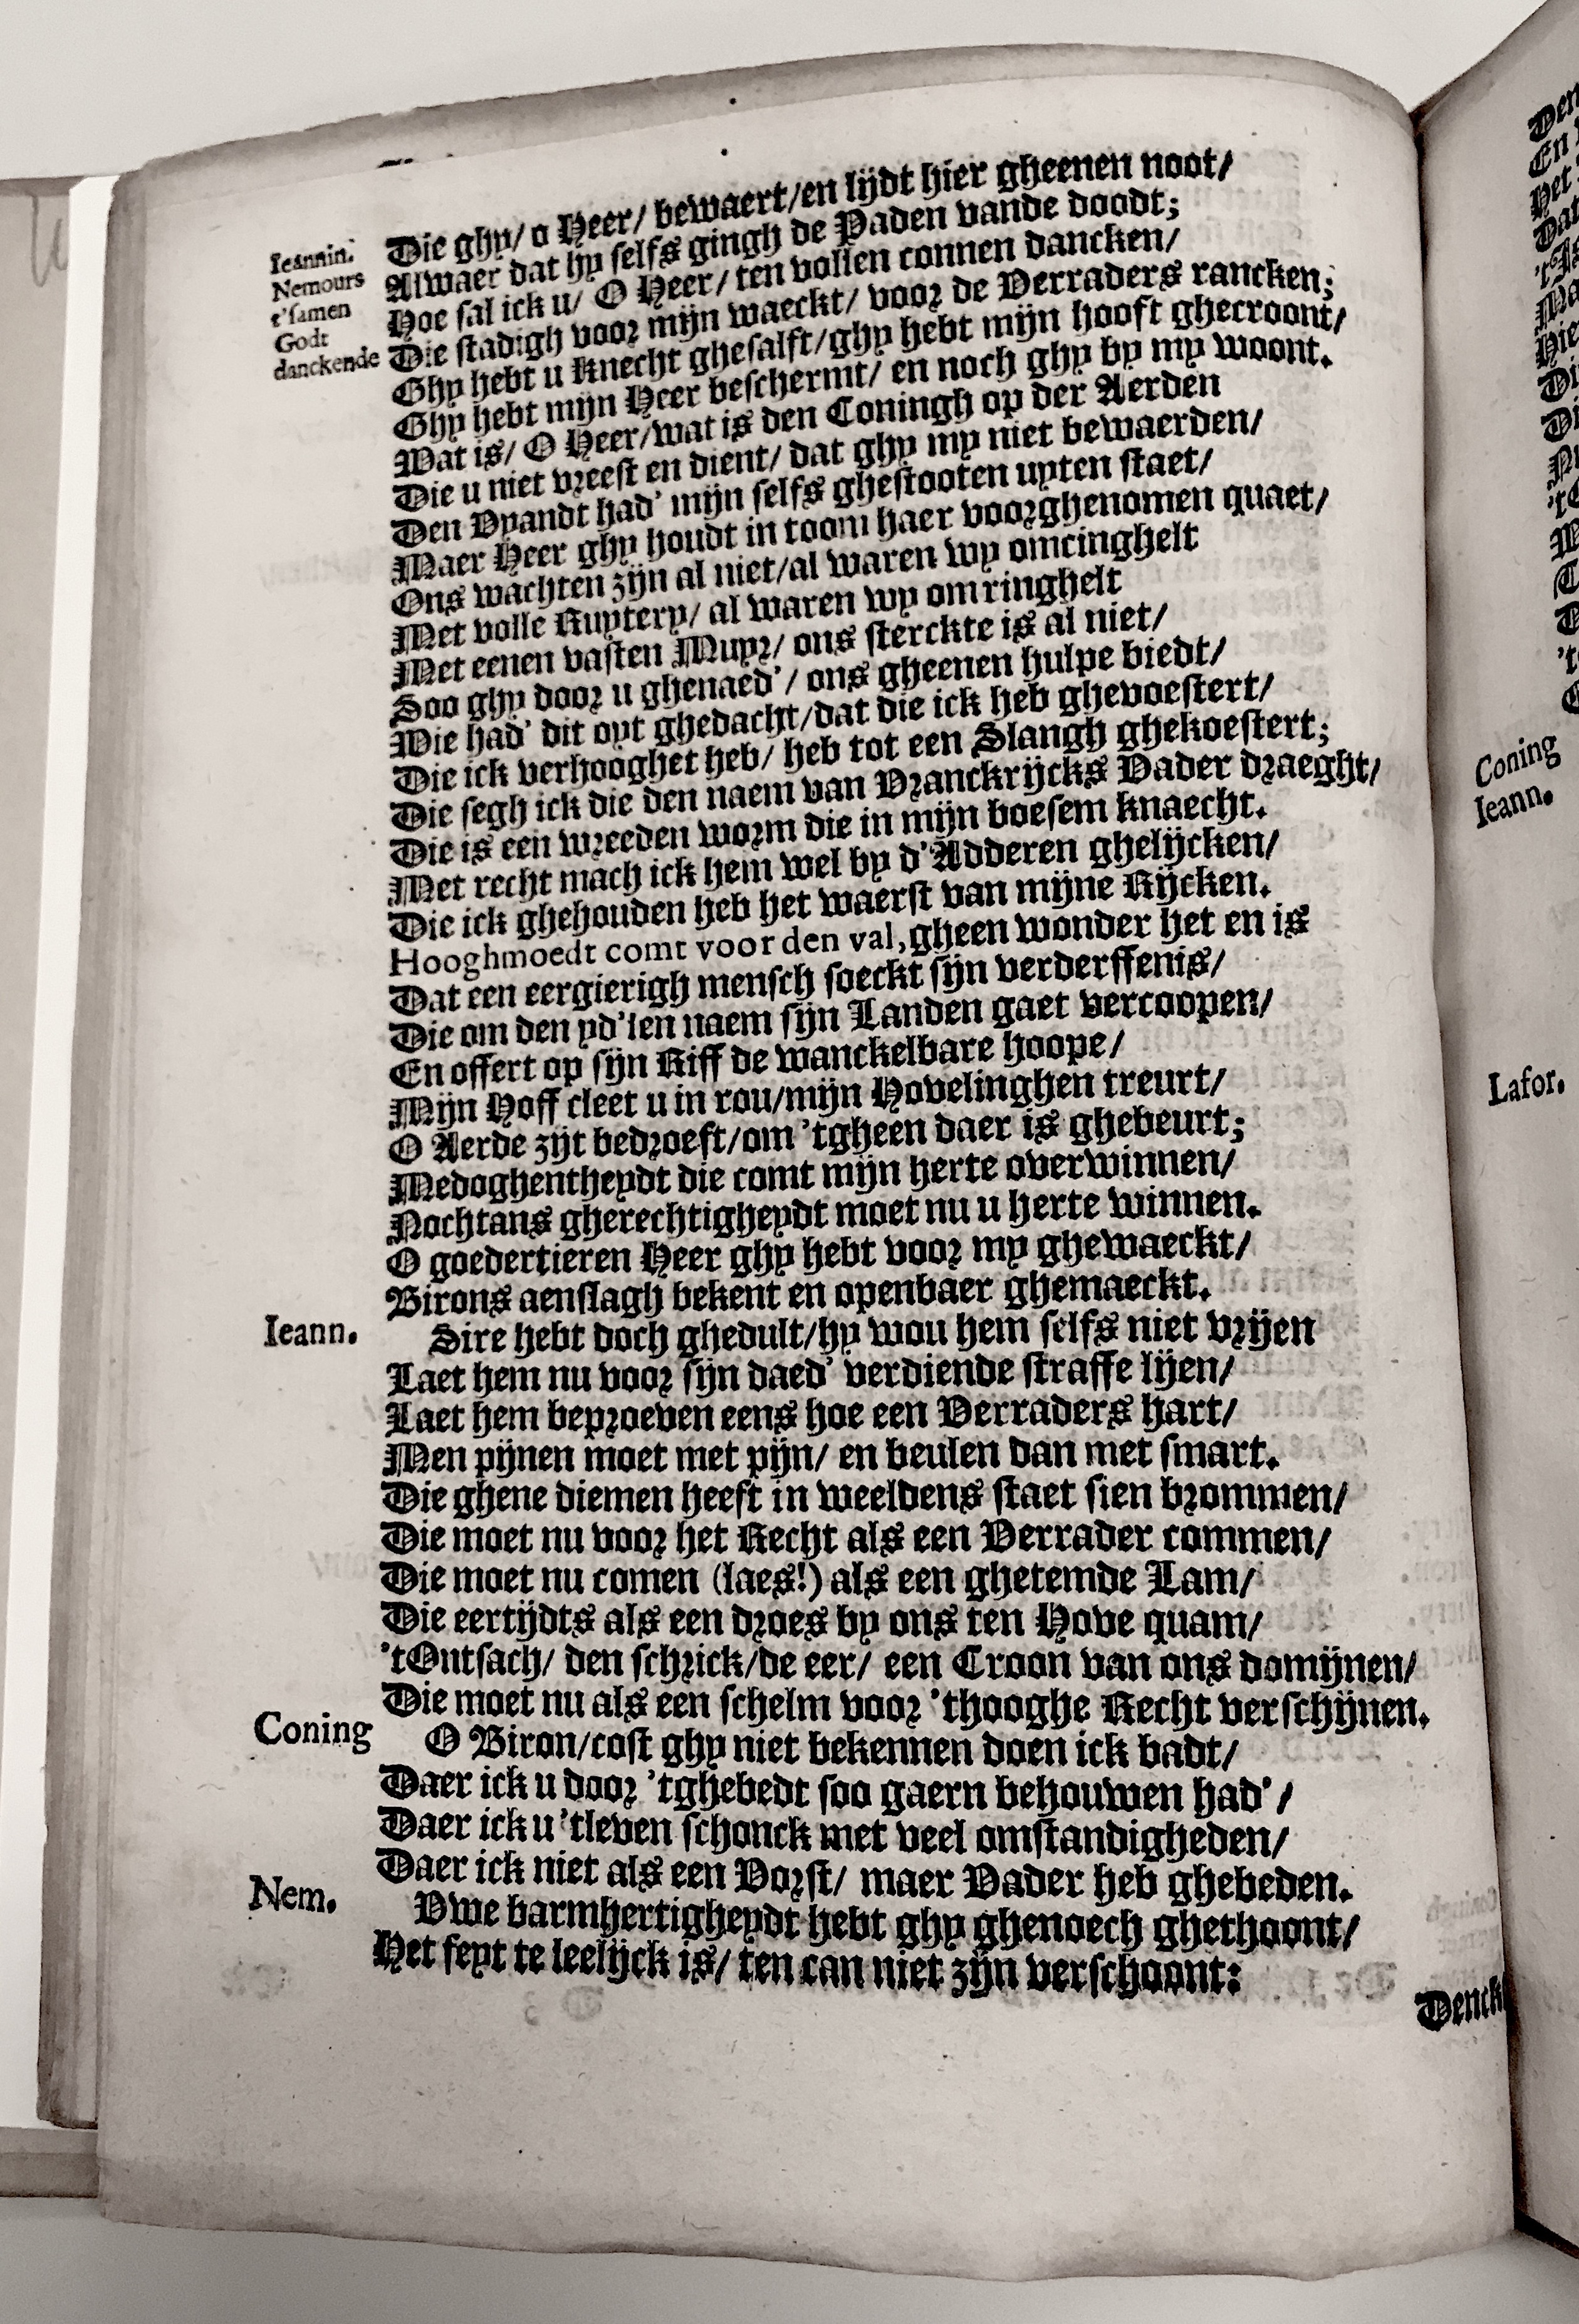 Ieannin. Die ghy/ o Heer/ bewaert/en lijdt hier gheenen noot/
Nemours Alwaer dat hy selfs gingh de Paden vande doodt;
t'samen Hoe sal ick u/ O Heer/ ten vollen connen dancken/
Godt Die stadigh voor mijn waeckt/ voor de Verraders rancken;
danckende Ghy hebt u knecht ghesalft/ghy hebt mijn hooft ghecroont/
Ghy hebt mijn Heer beschermt/ en noch ghy by my woont.
Wat is/ O Heer/wat is den Coningh op der Aerden
Die u niet vreest en dient/ dat ghy my niet bewaerden/
Den Vyandt had' mijn selfs ghestooten uyten staet/
Maer Heer ghy houdt in toom haer voorghenomen quaet/
Ons wachten zijn al niet/al waren wy omcinghelt
Met volle Ruytery/ al waren wy omringhelt
Met eenen vasten Muyr/ ons sterckte is al niet/
Soo ghy door u ghenaed'/ ons gheenen hulpe biedt/
Wie had' dit oyt ghedacht/dat die ick heb ghevoestert/
Die ick verhooghet heb/ heb tot een Slangh ghekoestert;
Die segh ick die den naem van Vranckrijcks Vader draeght/
Die is een wreeden worm die in mijn boesem knaecht.
Met recht mach ick hem wel by d'Adderen ghelijcken/
Die ick ghehouden heb het waerst van mijne Rijcken.
Hooghmoedt comt voor den val,gheen wonder het en is
Dat een eergierigh mensch soeckt sijn verderffenis/
Die om den yd'len naem sijn Landen gaet vercoopen/
En offert op sijn Riff de wanckelbare hoope/
Mijn Hoff cleet u in rou/mijn Hovelinghen treurt/
O Aerde zijt bedroeft/om 'tgheen daer is ghebeurt;
Medoghentheydt die comt mijn herte overwinnen/
Nochtans gherechtigheydt moet nu u herte winnen.
O goedertieren Heer ghy hebt voor my ghewaeckt/
Birons aenslagh bekent en openbaer ghemaeckt.
Ieann. Sire hebt doch ghedult/hy wou hem selfs niet vrijen
Laet hem nu voor sijn daed' verdiende straffe lijen/
Laet hem beproeven eens hoe een Verraders hart/
Men pijnen moet met pijn/ en beulen dan met smart.
Die ghene diemen heeft in weeldens staet sien brommen/
Die moet nu voor het Recht als een Verrader commen/
Die moet nu comen (laes!) als een ghetemde Lam/
Die eertijdts als een droes by ons ten Hove quam/
'tOntsach/ den schrick/de eer/ een Croon van ons domijnen/
Die moet nu als een schelm voor 'thooghe Recht verschijnen.
Coning O Biron/cost ghy niet bekennen doen ick badt/
Daer ick u door 'tghebedt soo gaern behouwen had'/
Daer ick u 'tleven schonck met veel omstandigheden/
Daer ick niet als een Vorst/ maer Vader heb ghebeden.
Nem. Vwe barmhertigheydt hebt ghy ghenoech ghethoont/
Het feyt te leelijck is/ ten can niet zijn verschoont:
Denck
Coning
Ieann.
Lafor.